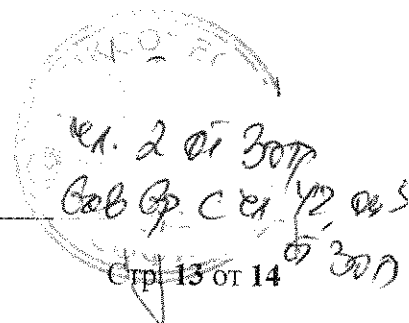 чл. 2 от ЗОП
във вр. с чл 42, ал 5
от ЗОП
Стр. 13 от 14